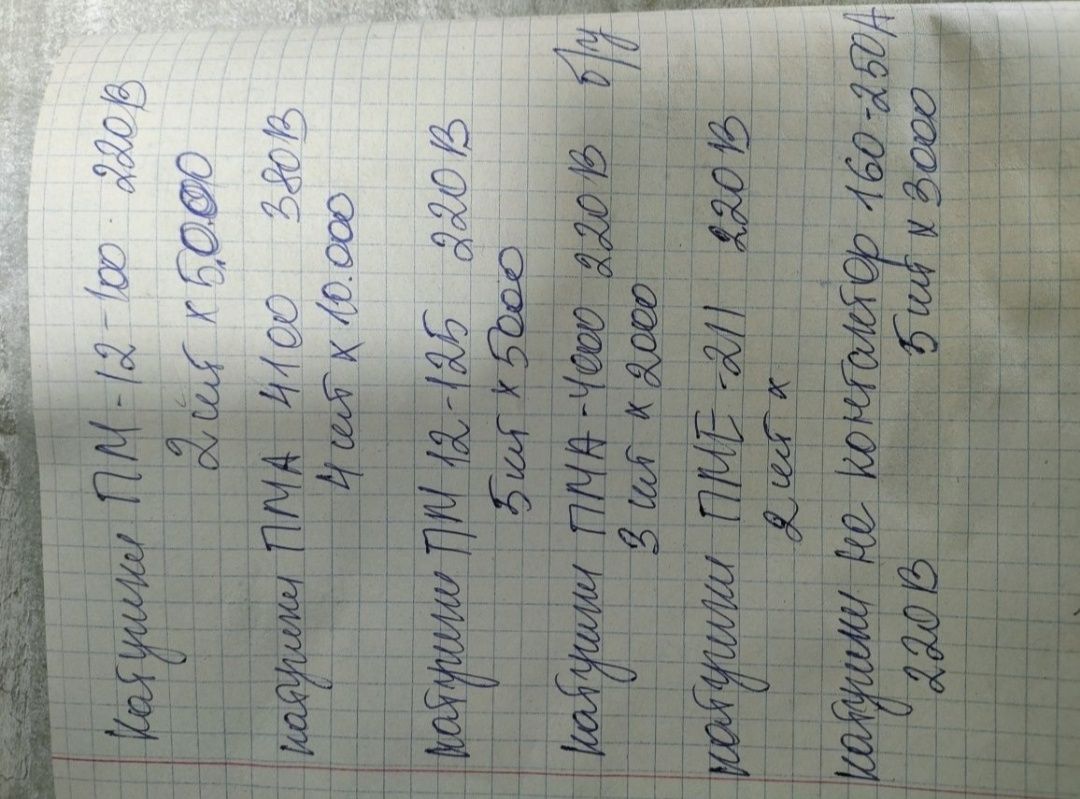 Катушки ПМ-12-100. 220В
2 шт х 5000
катушки ПМА 4100 380В
4 шт х 10.000
катушки ПМ 12-125 220В
5 шт х 5000
катушки ПМА-4000 220В б/у
3 шт х 2000
катушки ПМЕ-211 220В
2 шт х
катушки на контактор 160-250А
220В 5 шт х 3000